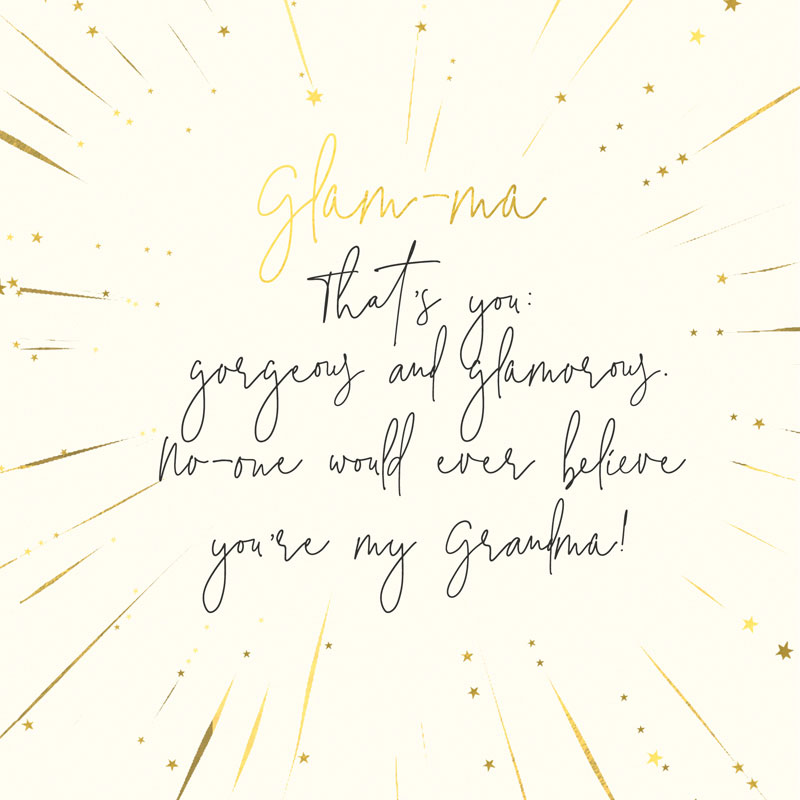 Glam-ma
That's you:
gorgeous and glamorous.
No-one would ever believe
you're my Grandma!